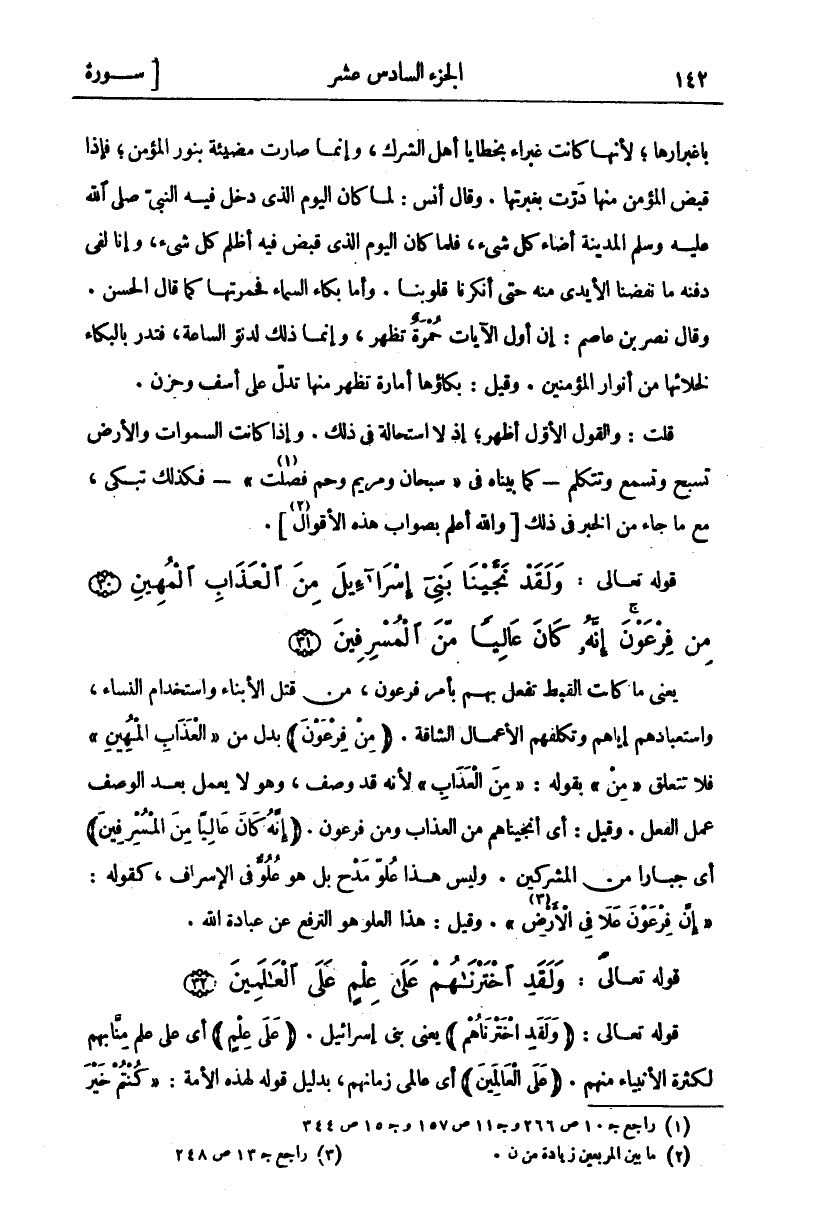 ١٤٢ الجزء السادس عشر [ ســورة
باغبرارها ؛ لأنهـا كانت غبراء بخطايا أهل الشرك ، وإنمـا صارت مضيئة بنور المؤمن ؛ فإذا
قبض المؤمن منها دَرّت بغبرتها . وقال أنس : لمـا كان اليوم الذى دخل فيـه النبيّ صلى الله
عليـه وسلم المدينة أضاء كل شىء ، فلما كان اليوم الذى قبض فيه أظلم كل شىء ، وإنا لفى
دفنه ما نفضنا الأيدى منه حتى أنكرنا قلوبنـا . وأما بكاء السماء فحمرتهـا كما قال الحسن .
وقال نصر بن عاصم : إن أول الآيات حُمْرَةٌ تظهر ، وإنمـا ذلك لدنوّ الساعة ، فتدر بالبكاء
لخلائها من أنوار المؤمنين . وقيل : بكاؤها أمارة تظهر منها تدلّ على أسف وحزن .
قلت : والقول الأوّل أظهر ؛ إذ لا استحالة فى ذلك . وإذا كانت السموات والأرض
تسبح وتسمع وتتكلم — كما بيناه فى « سبحان ومريم وحم فصلت » (١) — فـكذلك تبـكى ،
مع ما جاء من الخبر فى ذلك [ والله أعلم بصواب هذه الأقوال (٢) ] .
قوله تعالى : وَلَقَدْ نَجَّيْنَا بَنِىٓ إِسْرَآءِيلَ مِنَ ٱلْعَذَابِ ٱلْمُهِينِ ٣٠
مِن فِرْعَوْنَ ۚ إِنَّهُۥ كَانَ عَالِيًا مِّنَ ٱلْمُسْرِفِينَ ٣١
يعنى ما كات القبط تفعل بهـم بأمر فرعون ، من قتل الأبناء واستخدام النساء ،
واستعبادهم إياهم وتكلفهم الأعمـال الشاقة . ﴿ مِنْ فِرْعَوْنَ ﴾ بدل من « الْعَذَابِ الْمُهِينِ »
فلا تتعلق « مِنْ » بقوله : « مِنَ الْعَذَابِ » لأنه قد وصف ، وهو لا يعمل بعـد الوصف
عمل الفعل . وقيل : أى أنجيناهم من العذاب ومن فرعون . ﴿ إِنَّهُ كَانَ عَالِيًا مِنَ الْمُسْرِفِينَ ﴾
أى جبارا من المشركين . وليس هـذا عُلُوّ مَدْح بل هو عُلُوٌّ فى الإسراف ، كقوله :
« إِنَّ فِرْعَوْنَ عَلَا فِى الْأَرْضِ » (٣) . وقيل : هذا العلو هو الترفع عن عبادة الله .
قوله تعـالى : وَلَقَدِ ٱخْتَرْنَـٰهُمْ عَلَىٰ عِلْمٍ عَلَى ٱلْعَـٰلَمِينَ ٣٢
قوله تعـالى : ﴿ وَلَقَدِ اخْتَرْنَاهُمْ ﴾ يعنى بنى إسرائيل . ﴿ عَلَى عِلْمٍ ﴾ أى على علم مِنَّا بهم
لكثرة الأنبياء منهم . ﴿ عَلَى الْعَالَمِينَ ﴾ أى عالمى زمانهم ، بدليل قوله لهذه الأمة : « كُنْتُمْ خَيْرَ
(١) راجع جـ ١٠ ص ٢٦٦ وجـ ١١ ص ١٥٧ وجـ ١٥ ص ٣٤٤
(٢) ما بين المربعين زيادة من ن . (٣) راجع جـ ١٣ ص ٢٤٨